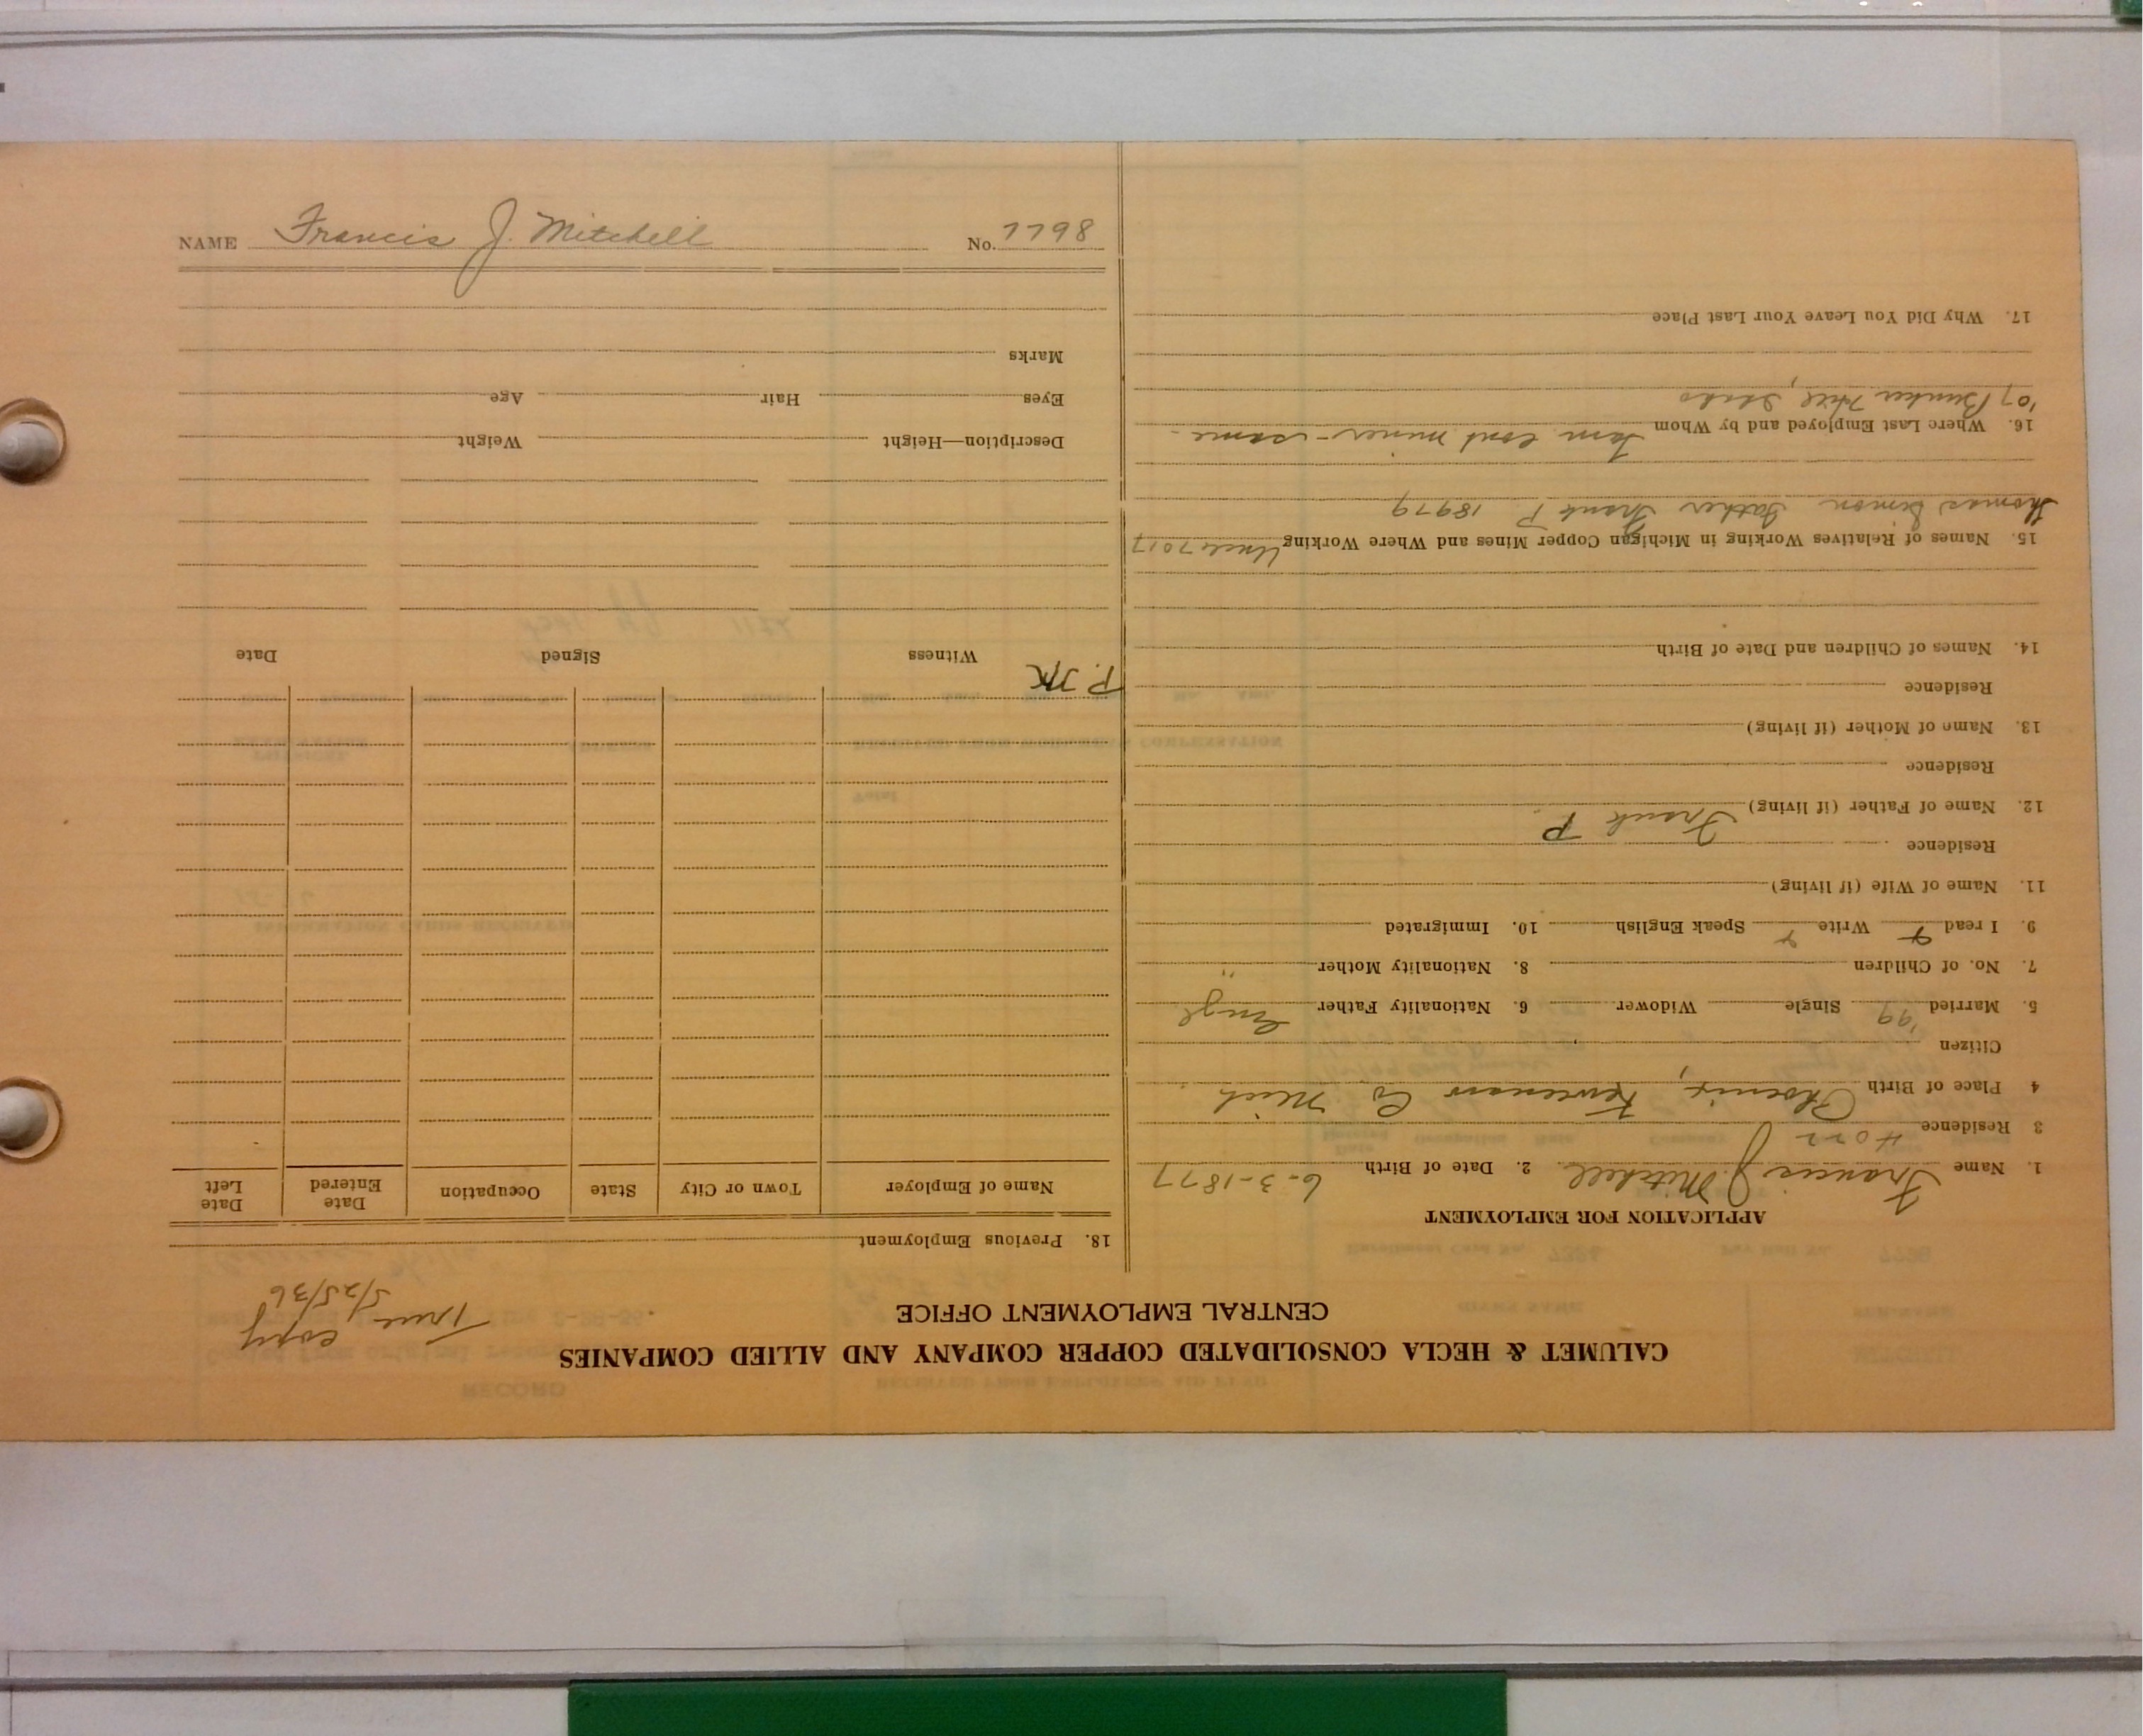 CALUMET & HECLA CONSOLIDATED COPPER COMPANY AND ALLIED COMPANIES
CENTRAL EMPLOYMENT OFFICE
True copy
5/25/36
APPLICATION FOR EMPLOYMENT
1. Name Francis J. Mitchell 2. Date of Birth 6-3-1877
3 Residence
4 Place of Birth Phoenix, Keweenaw Co Mich
Citizen
5. Married '99 Single Widower 6. Nationality Father Engl
7. No. of Children 8. Nationality Mother "
9. I read Write Speak English 10. Immigrated
11. Name of Wife (if living)
Residence
12. Name of Father (if living) Frank P.
Residence
13. Name of Mother (if living)
Residence
14. Names of Children and Date of Birth
15. Names of Relatives Working in Michigan Copper Mines and Where Working Uncle 7017
Thomas Simon Father Frank P 18979
16. Where Last Employed and by Whom Tam cont miner - same -
'07 Bunker Hill, Idaho
17. Why Did You Leave Your Last Place
18. Previous Employment
Name of Employer Town or City State Occupation Date Entered Date Left
Witness Signed Date
Description—Height Weight
Eyes Hair Age
Marks
NAME Francis J. Mitchell No. 7798